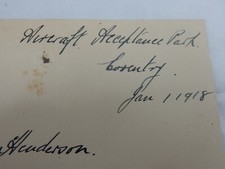 Aircraft Acceptance Park.
Coventry.
Jan 1 1918
Henderson.